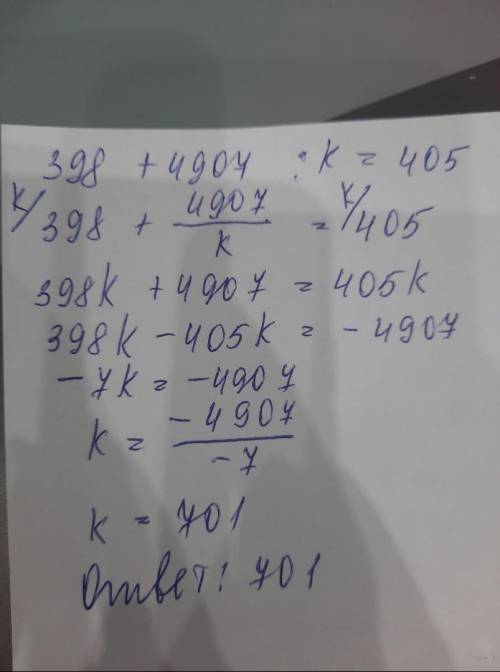 398 + 4907 : k = 405
k/ 398 + 4907/k = k/ 405
398k + 4907 = 405k
398k - 405k = - 4907
- 7k = - 4907
k = - 4907 / - 7
k = 701
Ответ: 701